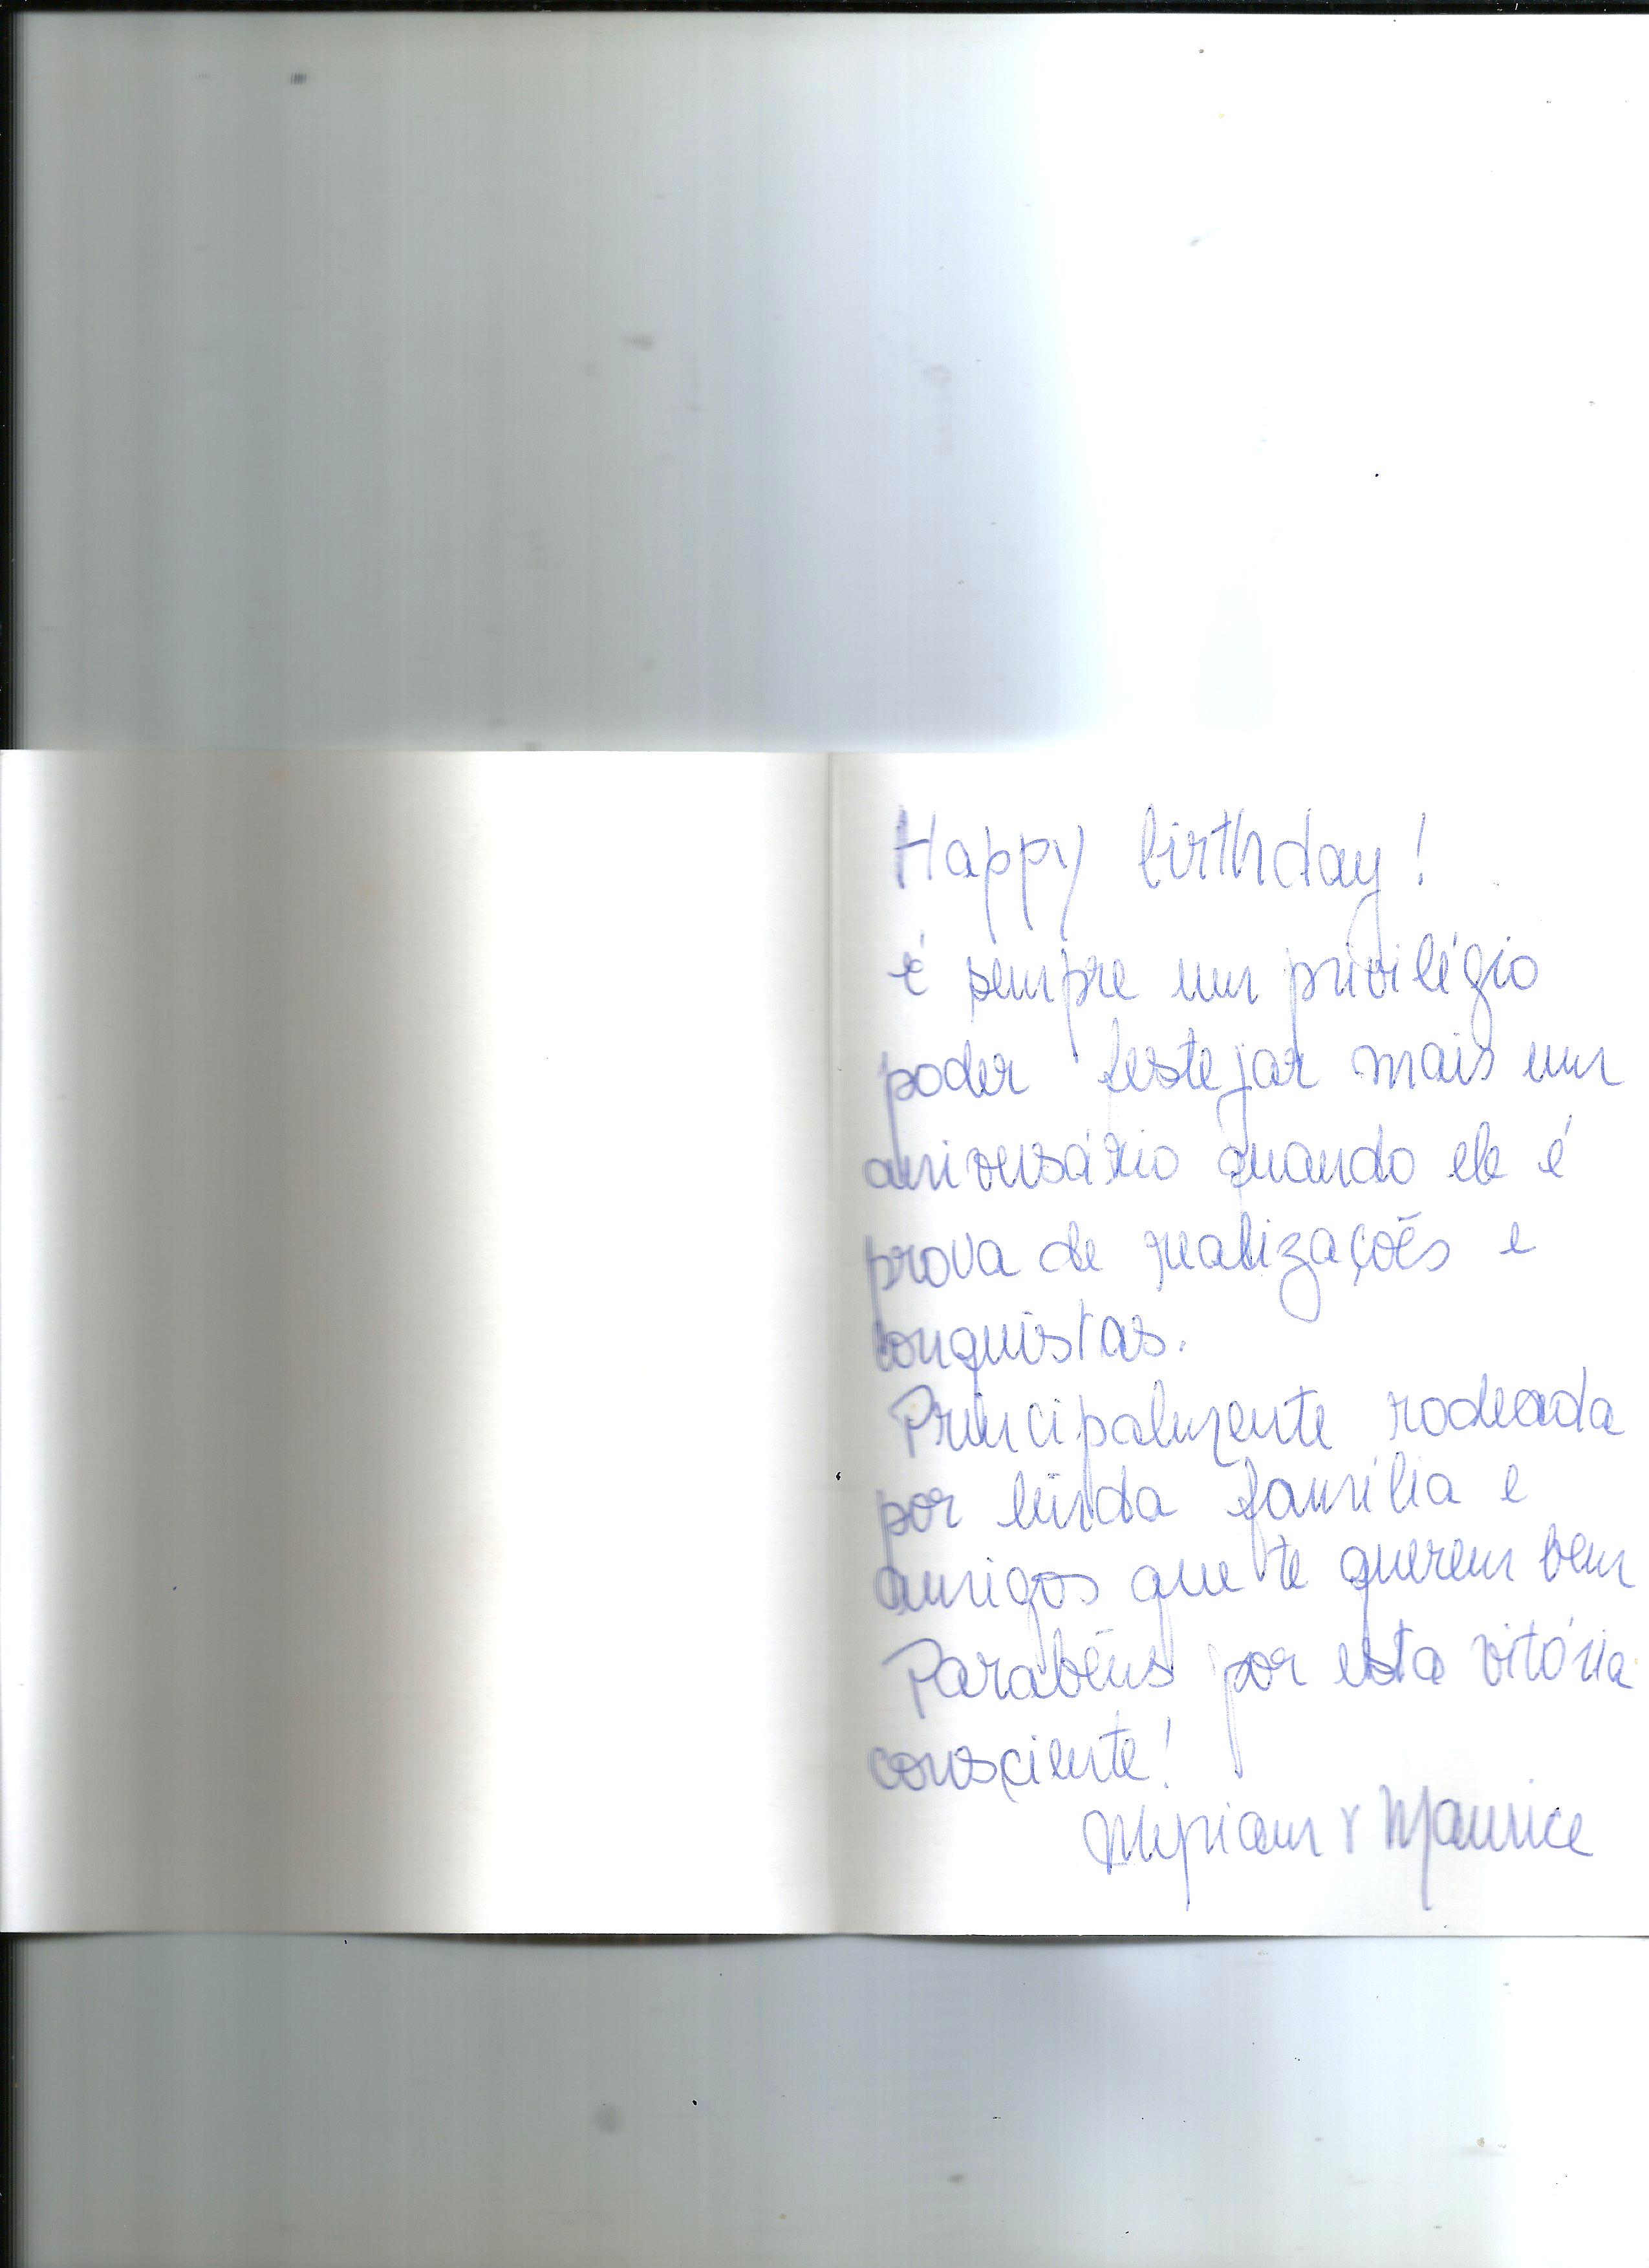 Happy birthday!
é sempre um privilégio
poder festejar mais um
aniversário quando ele é
prova de realizações e
conquistas.
Principalmente rodeada
por linda família e
amigos que te querem bem
Parabéns por esta vitória
consciente!
Myriam & Maurice